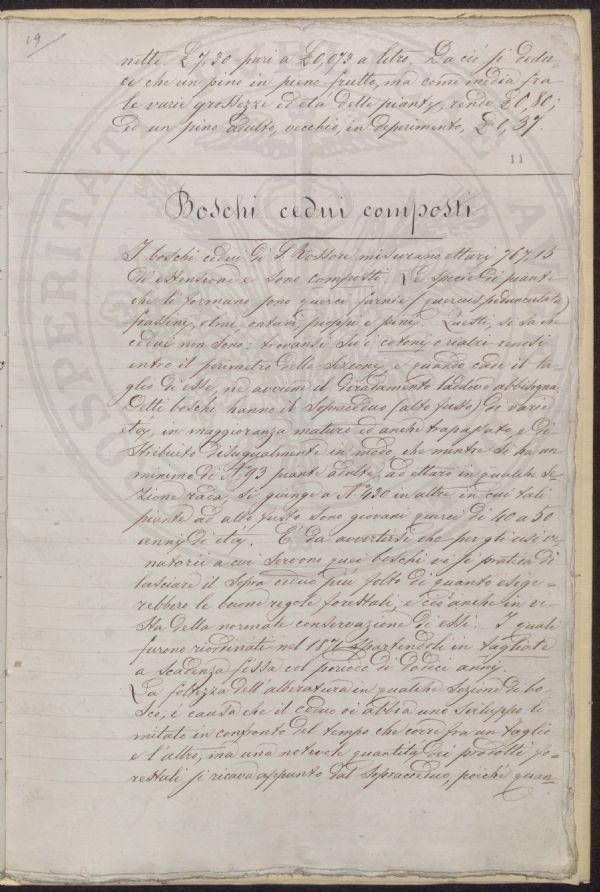 19
nette £ 7,30 pari a £ 0,073 a litro. Da ciò si dedu-
ce che un pino in pieno frutto, ma come media fra
le varie grossezze ed età delle piante, rende £ 0,80;
ed un pino adulto, vecchio, in deperimento, £ 0,37.
11
Boschi cedui composti
I boschi cedui di S. Rossore misurano ettari 767,15
di estensione e sono composti. Le specie di piante
che li formano sono querci farnie (quercus pedunculata)
frassini, olmi, ontani, pioppi e pini. Questi, si sa che
cedui non sono: trovansi su i cotoni e rialzi renosi
entro il perimetro delle sezioni, e quando cade il ta-
glio di esse, ne avviene il diradamento laddove abbisogna.
Detti boschi hanno il sopraceduo (alto fusto) di varie
età, in maggioranza mature ed anche trapassate, e di-
stribuito disugualmente in modo, che mentre si ha un
minimo di N. 93 piante adulte ad ettaro in qualche se-
zione rada, si giunge a N. 430 in altre in cui tali
piante ad alto fusto sono giovani querci di 40 a 50
anni di età. È da avvertirsi che per gli usi ve-
natorii a cui servono quei boschi vi si pratica di
lasciare il sopra ceduo più folto di quanto esige-
rebbero le buone regole forestali, e ciò anche in vi-
sta della normale conservazione di essi. I quali
furono riordinati nel 1871 spartendoli in tagliate
a scadenza fissa col periodo di dodici anni.
La foltezza dell'alberatura in qualche sezione di bo-
sco, è causa che il ceduo vi abbia uno sviluppo li-
mitato in confronto del tempo che corre fra un taglio
e l'altro, ma una notevole quantità dei prodotti fo-
restali si ricava appunto dal sopraceduo, poichè quan-